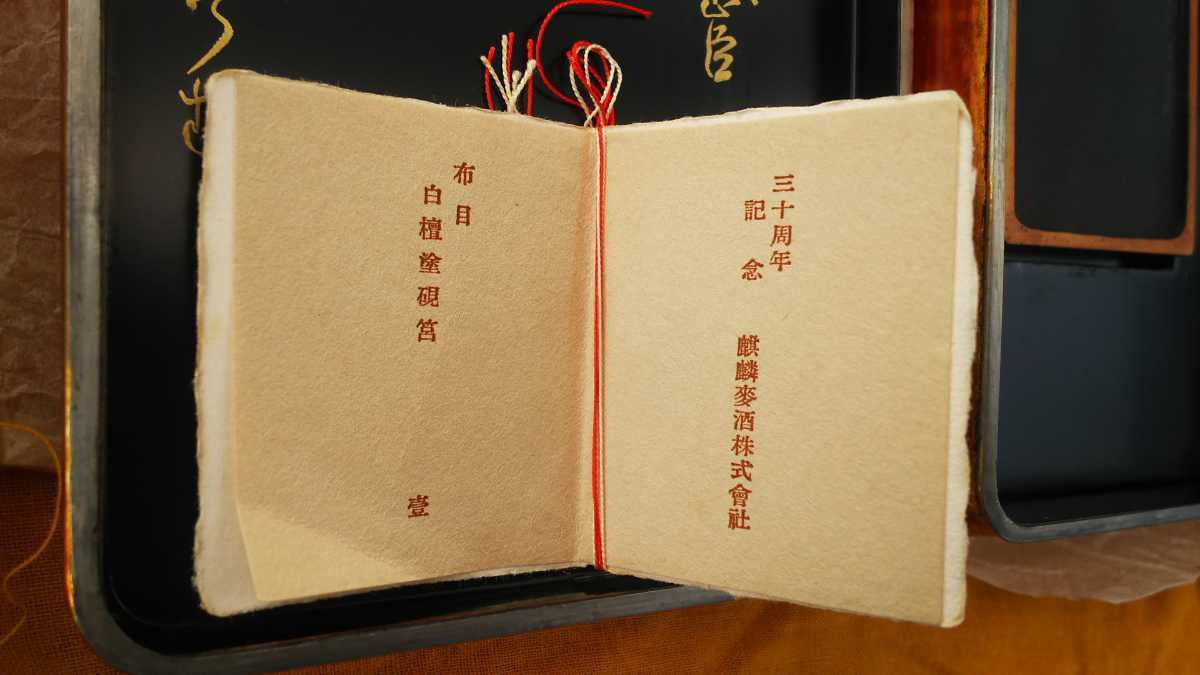 三十周年
記念
麒麟麥酒株式會社
布目
白檀塗硯筥
壹